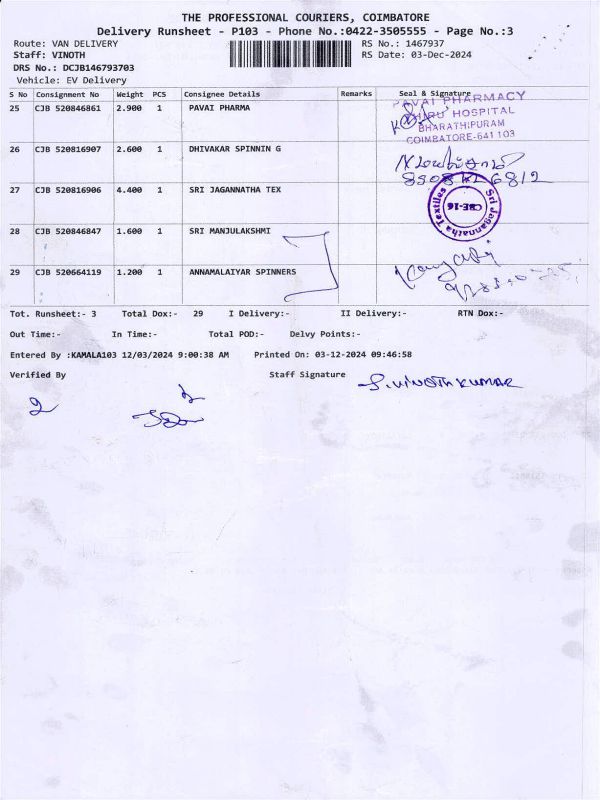 THE PROFESSIONAL COURIERS, COIMBATORE
Delivery Runsheet - P103 - Phone No.:0422-3505555 - Page No.:3
Route: VAN DELIVERY RS No.: 1467937
Staff: VINOTH RS Date: 03-Dec-2024
DRS No.: DCJB146793703
Vehicle: EV Delivery
S No Consignment No Weight PCS Consignee Details Remarks Seal & Signature
25 CJB 520846861 2.900 1 PAVAI PHARMA
PAVAI PHARMACY
HOSPITAL
BHARATHIPURAM
COIMBATORE-641 103
26 CJB 520816907 2.600 1 DHIVAKAR SPINNIN G
27 CJB 520816906 4.400 1 SRI JAGANNATHA TEX
Sri Jagannatha Textiles
CBE-16
28 CJB 520846847 1.600 1 SRI MANJULAKSHMI
29 CJB 520664119 1.200 1 ANNAMALAIYAR SPINNERS
Tot. Runsheet:- 3 Total Dox:- 29 I Delivery:- II Delivery:- RTN Dox:-
Out Time:- In Time:- Total POD:- Delvy Points:-
Entered By :KAMALA103 12/03/2024 9:00:38 AM Printed On: 03-12-2024 09:46:58
Verified By Staff Signature
S.VINOTH KUMAR